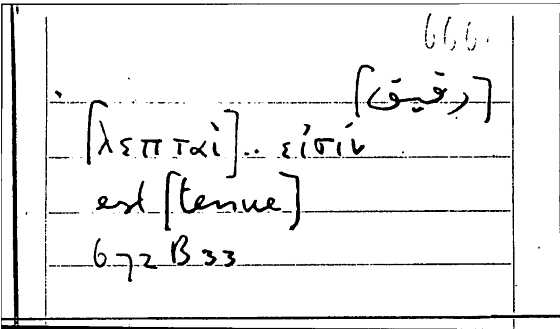 666.
[رقيق]
[λεπταὶ].. εἰσίν
est [tenue]
672 B 33